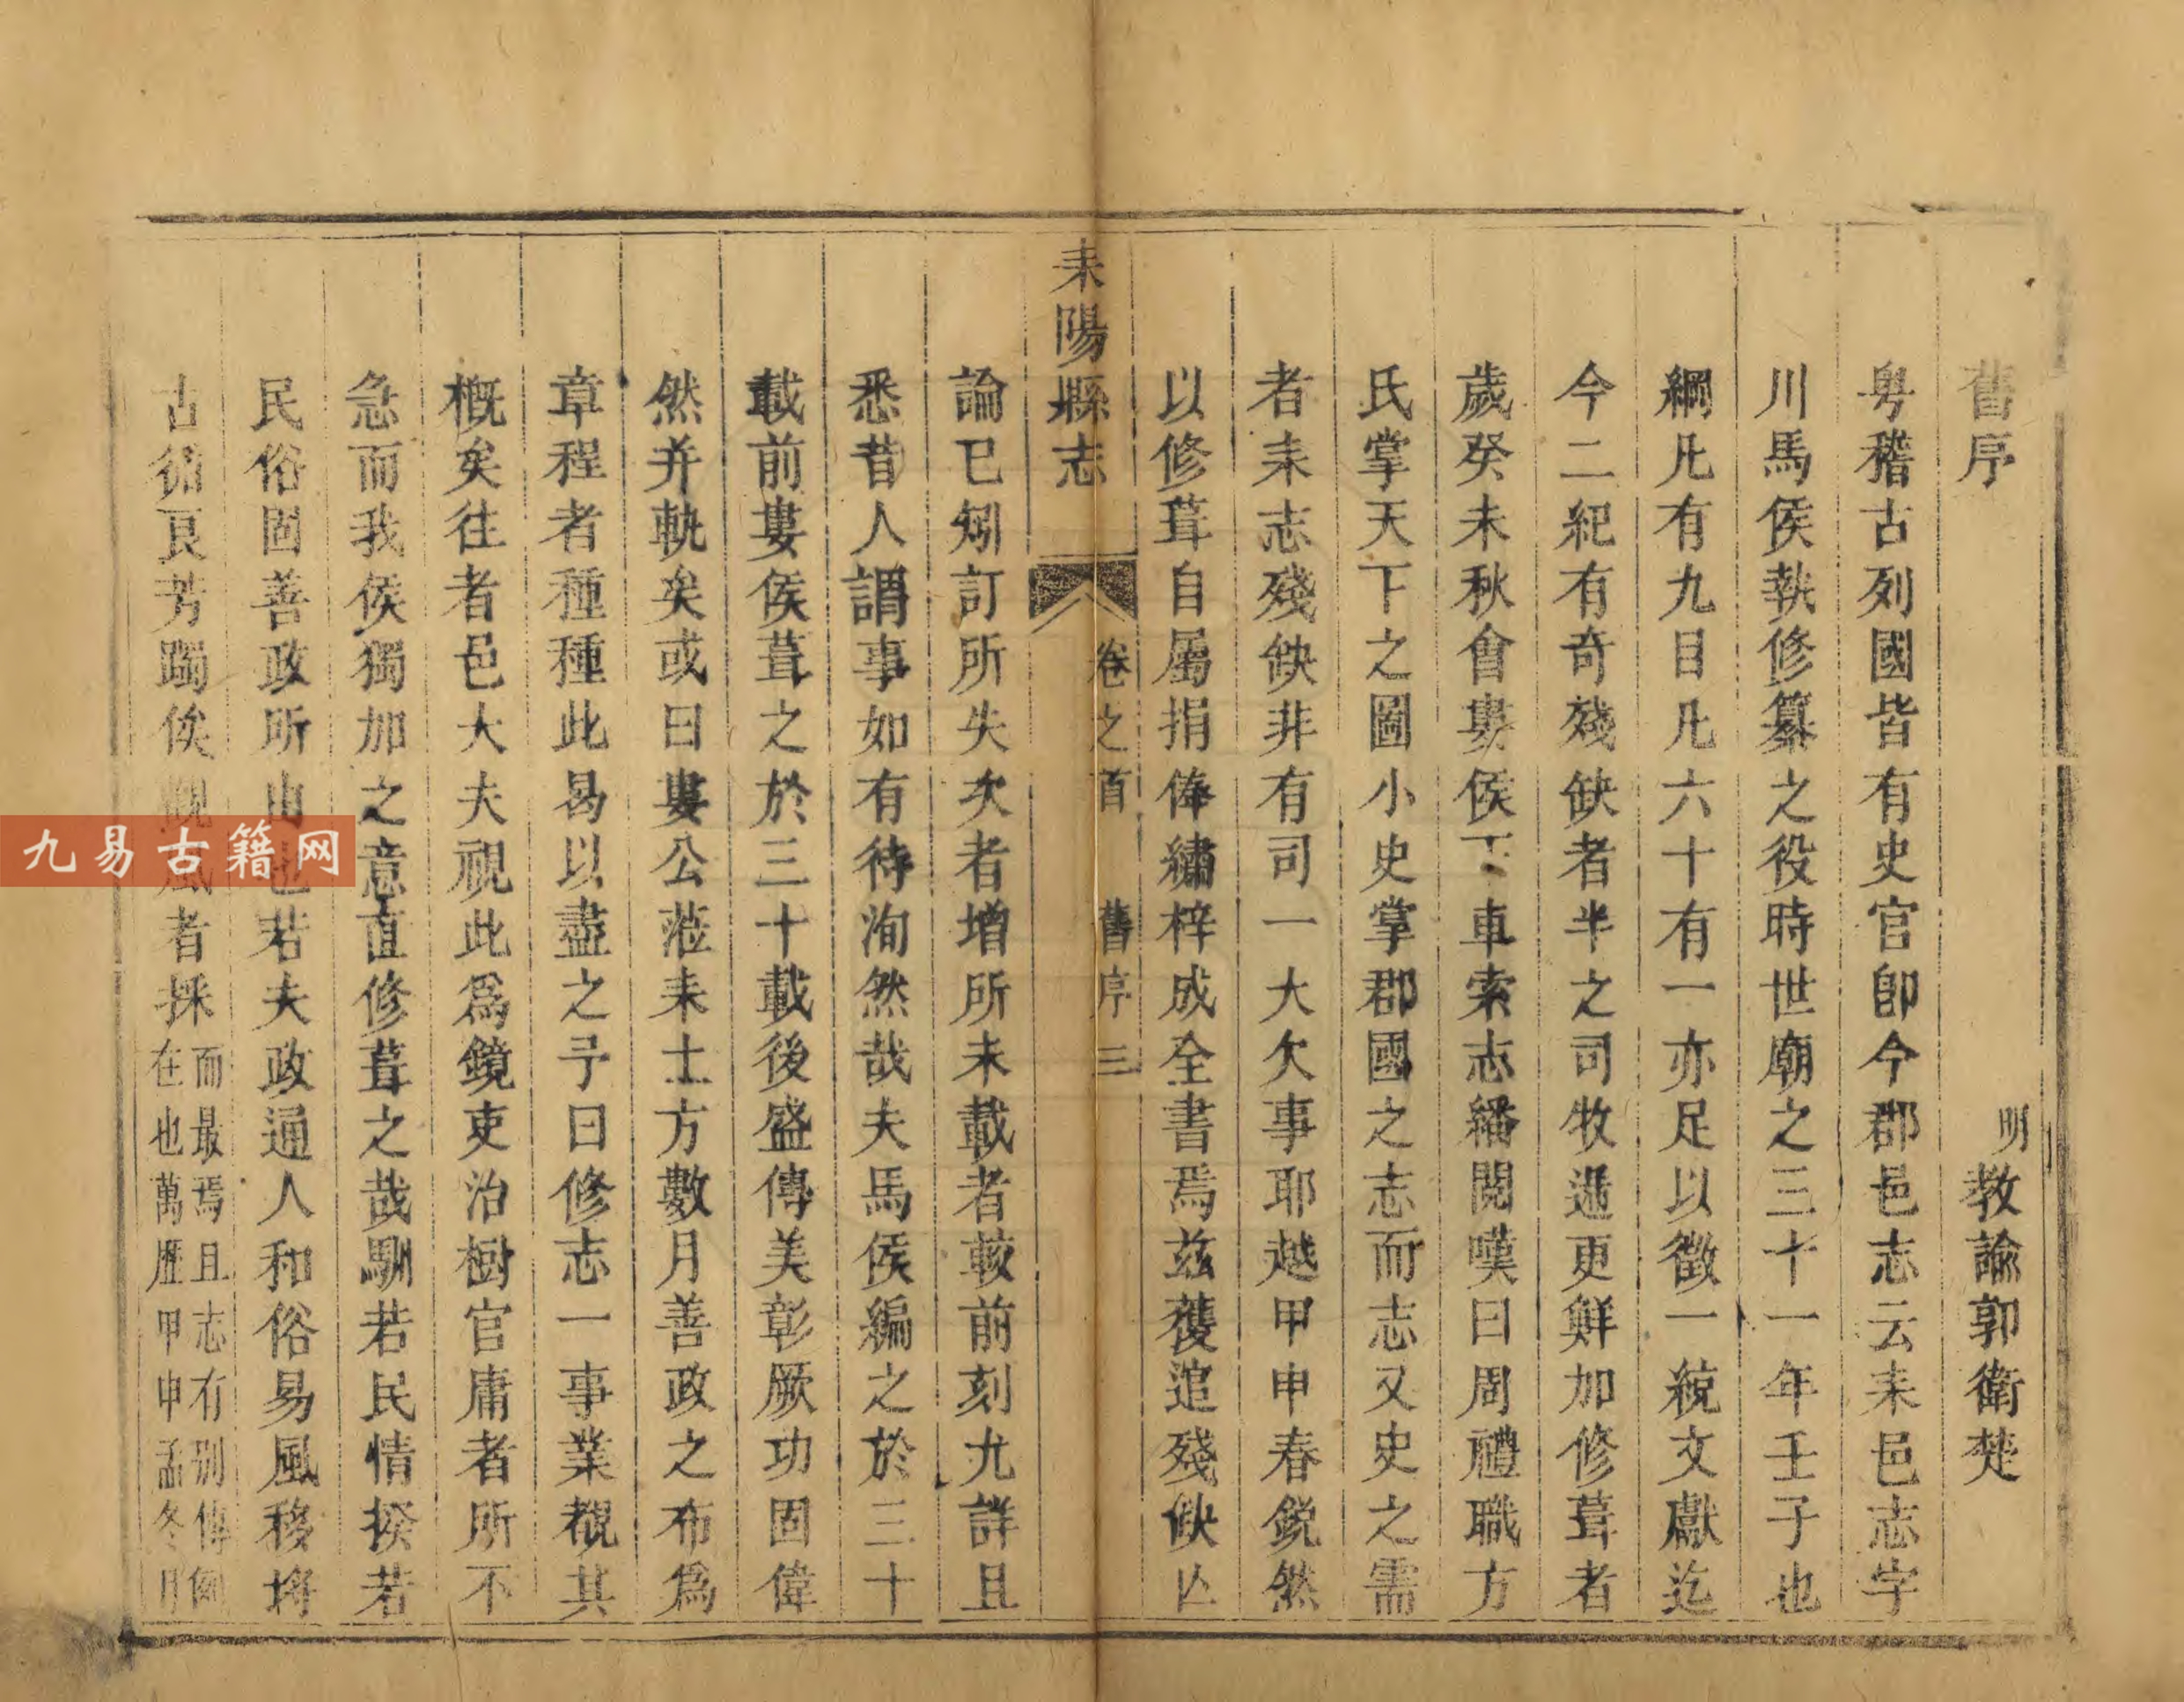 舊序
明教諭郭衛楚
粤稽古列國皆有史官卽今郡邑志云耒邑志字
川馬侯執修纂之役時世廟之三十一年壬子也
綱凡有九目凡六十有一亦足以徵一統文獻迄
今二紀有奇殘缺者半之司牧遞更鮮加修葺者
歲癸未秋會婁侯下車索志繙閱嘆曰周禮職方
氏掌天下之圖小史掌郡國之志而志又史之需
者耒志殘缺非有司一大欠事耶越甲申春銳然
以修葺自屬捐俸繡梓成全書焉茲獲追殘缺亡
耒陽縣志
卷之首 舊序 三
論已矧訂所失次者增所未載者較前刻尤詳且
悉昔人謂事如有待洵然哉夫馬侯編之於三十
載前婁侯葺之於三十載後盛傳美彰厥功固偉
然并軌矣或曰婁公蒞耒士方數月善政之布爲
章程者種種此曷以盡之予曰修志一事業覩其
概矣往者邑大夫視此爲鏡吏治樹官庸者所不
急而我侯獨加之意亟修葺之哉馴若民情揆若
民俗固善政所由也若夫政通人和俗易風移將
古循良芳躅俟觀風者採
而最焉且志有別傳例
在也萬歷甲申孟冬月
九易古籍网